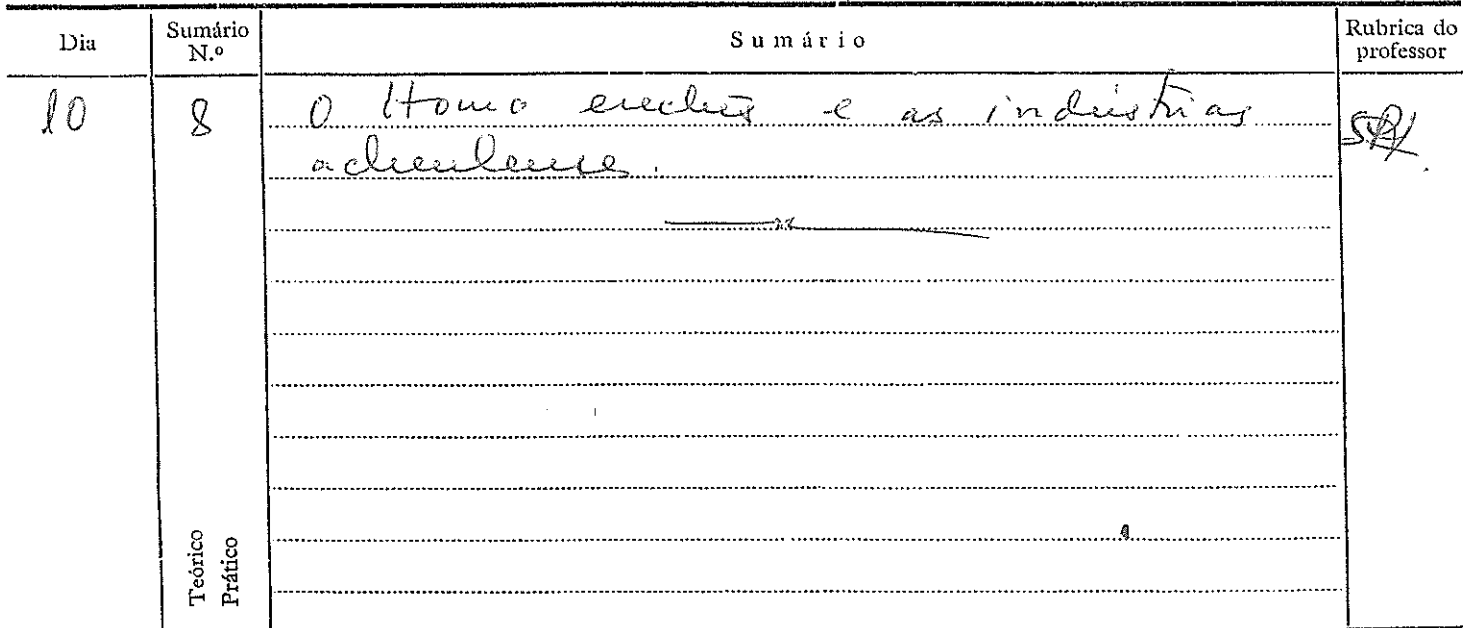 Dia
Sumário
N.º
Sumário
Rubrica do
professor
10
8
O Homo erectus e as indústrias
acheulenses.
Teórico
Prático